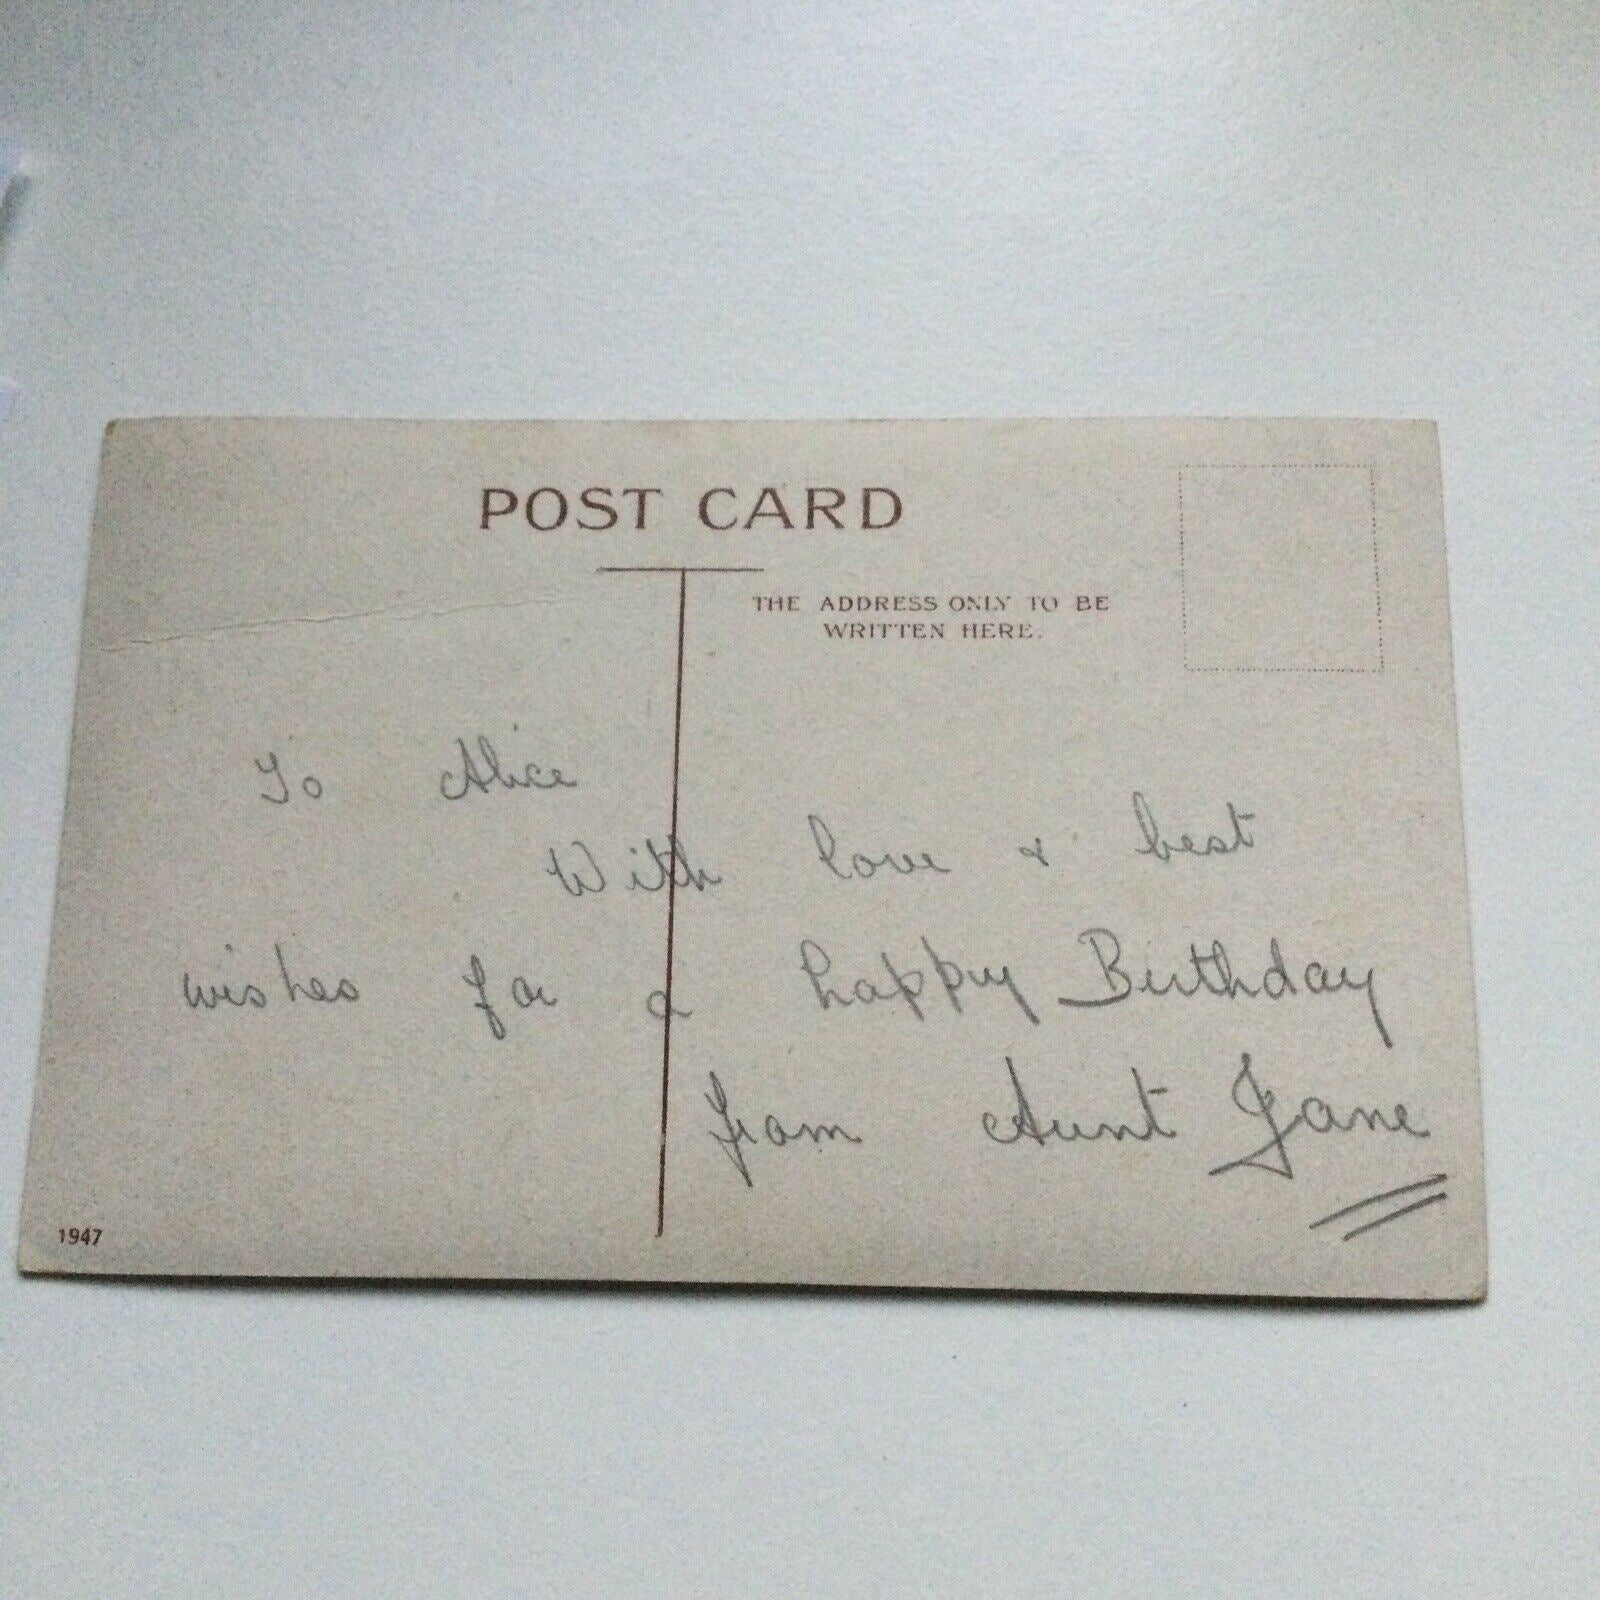 POST CARD
THE ADDRESS ONLY TO BE
WRITTEN HERE.
To Alice
With love & best
wishes for a happy Birthday
from Aunt Jane
1947